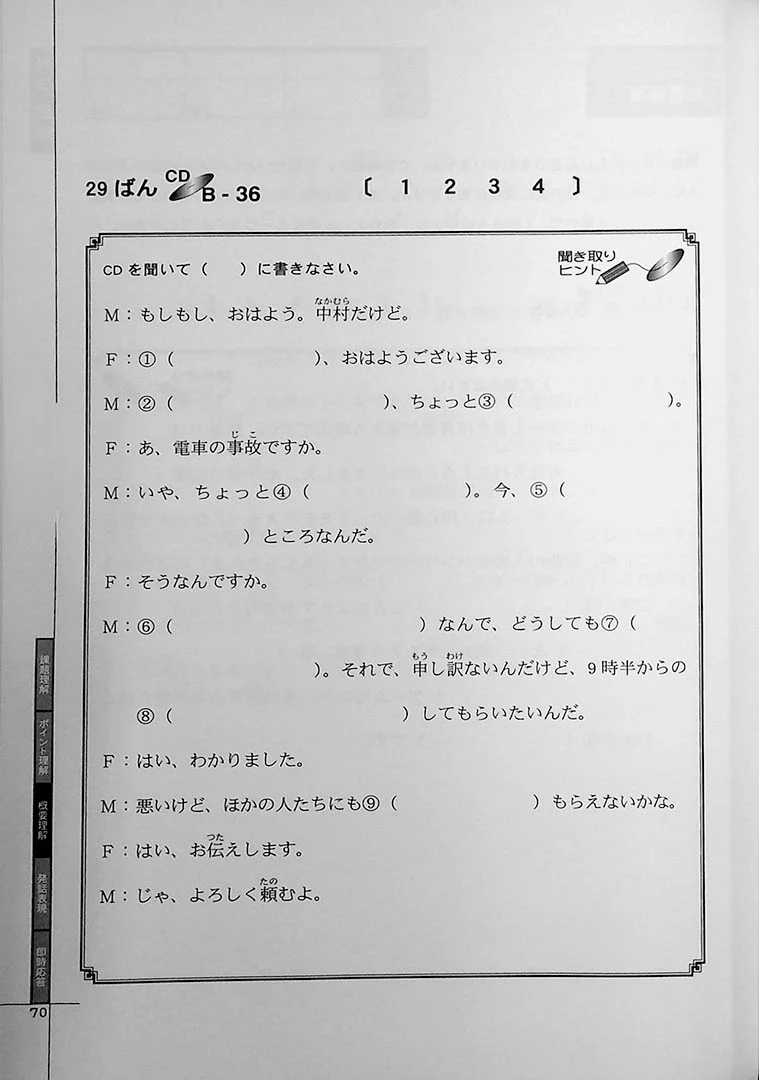 29 ばん CD B - 36 〔 1 2 3 4 〕
CD を聞いて（　　）に書きなさい。
聞き取り
ヒント
M：もしもし、おはよう。中村だけど。
なかむら
F：①（　　　　　　　　）、おはようございます。
M：②（　　　　　　　　　　　　）、ちょっと③（　　　　　　　　　）。
F：あ、電車の事故ですか。
じこ
M：いや、ちょっと④（　　　　　　　　　）。今、⑤（
）ところなんだ。
F：そうなんですか。
M：⑥（　　　　　　　　　　　　　　）なんで、どうしても⑦（
）。それで、申し訳ないんだけど、9 時半からの
もう わけ
⑧（　　　　　　　　　　　　　）してもらいたいんだ。
F：はい、わかりました。
M：悪いけど、ほかの人たちにも⑨（　　　　　　　　）もらえないかな。
F：はい、お伝えします。
つた
M：じゃ、よろしく頼むよ。
たの
課題理解
ポイント理解
概要理解
発話表現
即時応答
70